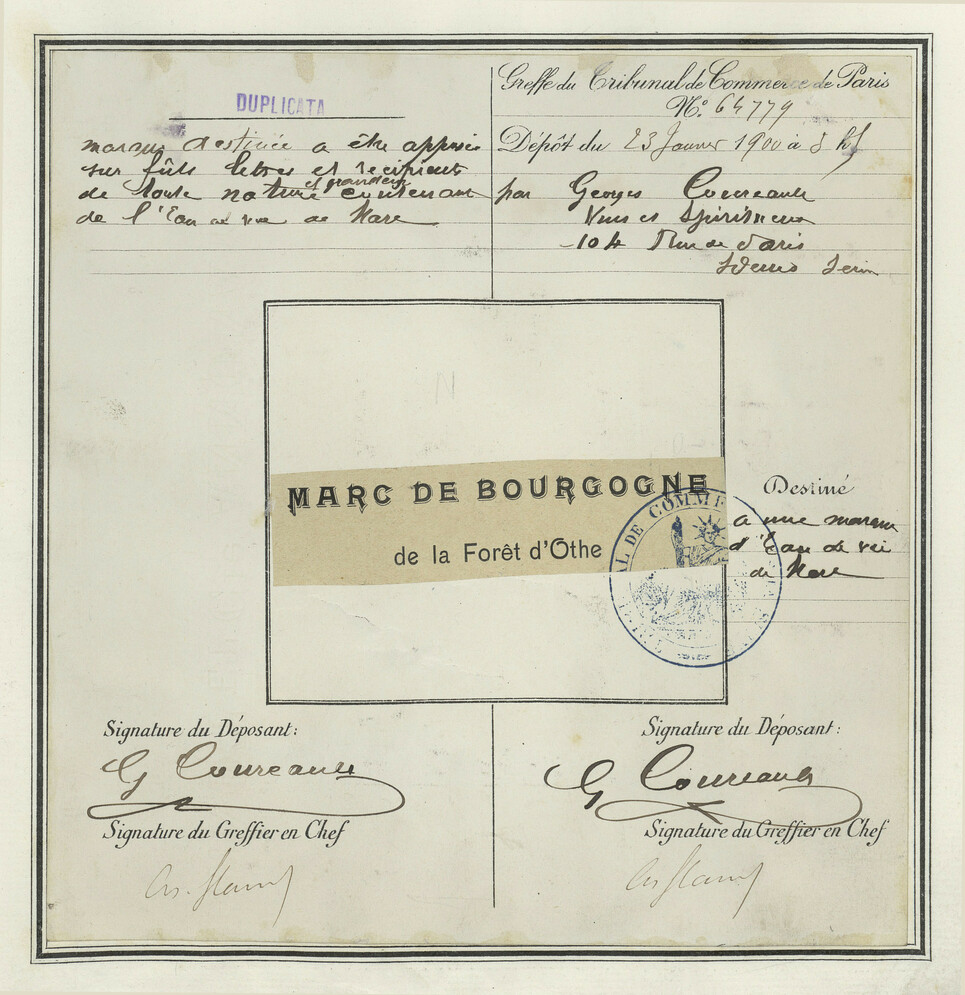 DUPLICATA
marque destinée a être apposée
sur fûts et récipients
de toute nature et grandeurs contenant
de l'Eau de vie de Marc
Greffe du Tribunal de Commerce de Paris
No. 64779
Dépôt du 23 Janvier 1900 à 3 h
par Georges Coureault
Vins et Spiritueux
104 Rue de Paris
MARC DE BOURGOGNE
de la Forêt d'Othe
AL DE COMME
Destiné
a une marque
d'Eau de vie
de Marc
Signature du Déposant:
G Coureault
Signature du Greffier en Chef
Signature du Déposant:
G Coureault
Signature du Greffier en Chef